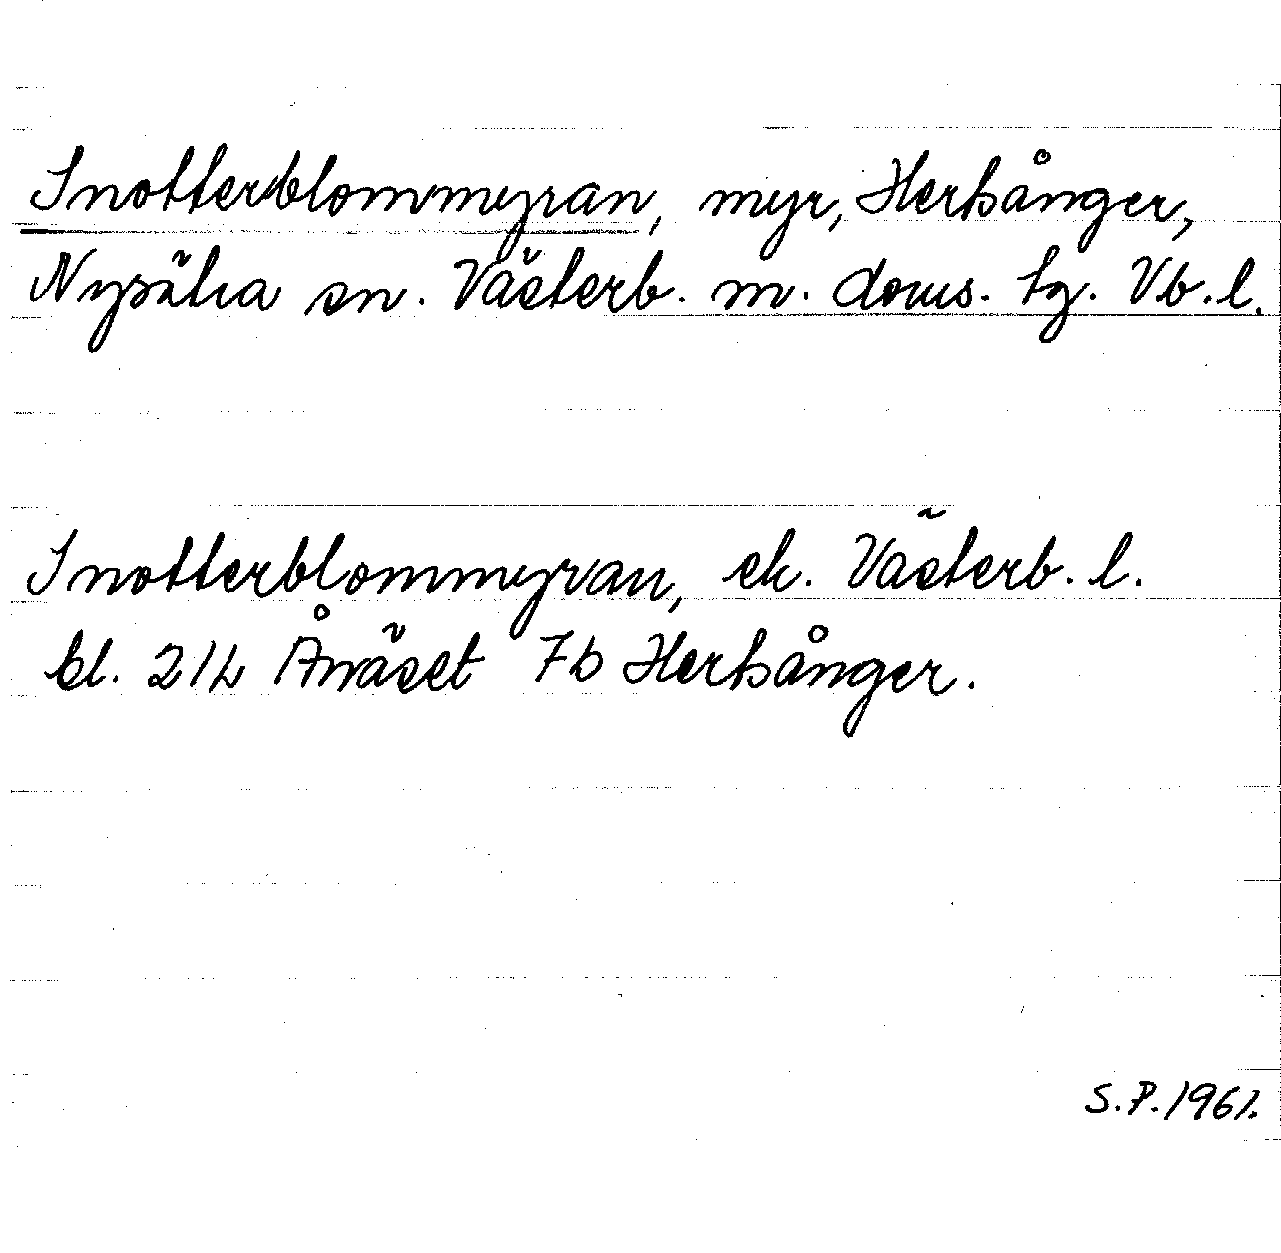 Snotterblommyran, myr, Herrsånger,
Nysätra sn. Västerb. m. doms. tg. Vb. l.
Snotterblommyran, ek. Västerb. l.
bl. 21L Ånäset 7b Hertsånger.
S.P. 1961.